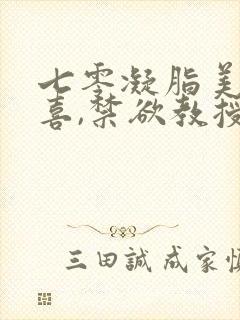 七零凝脂美
喜,禁欲教授
三田誠 成家慎